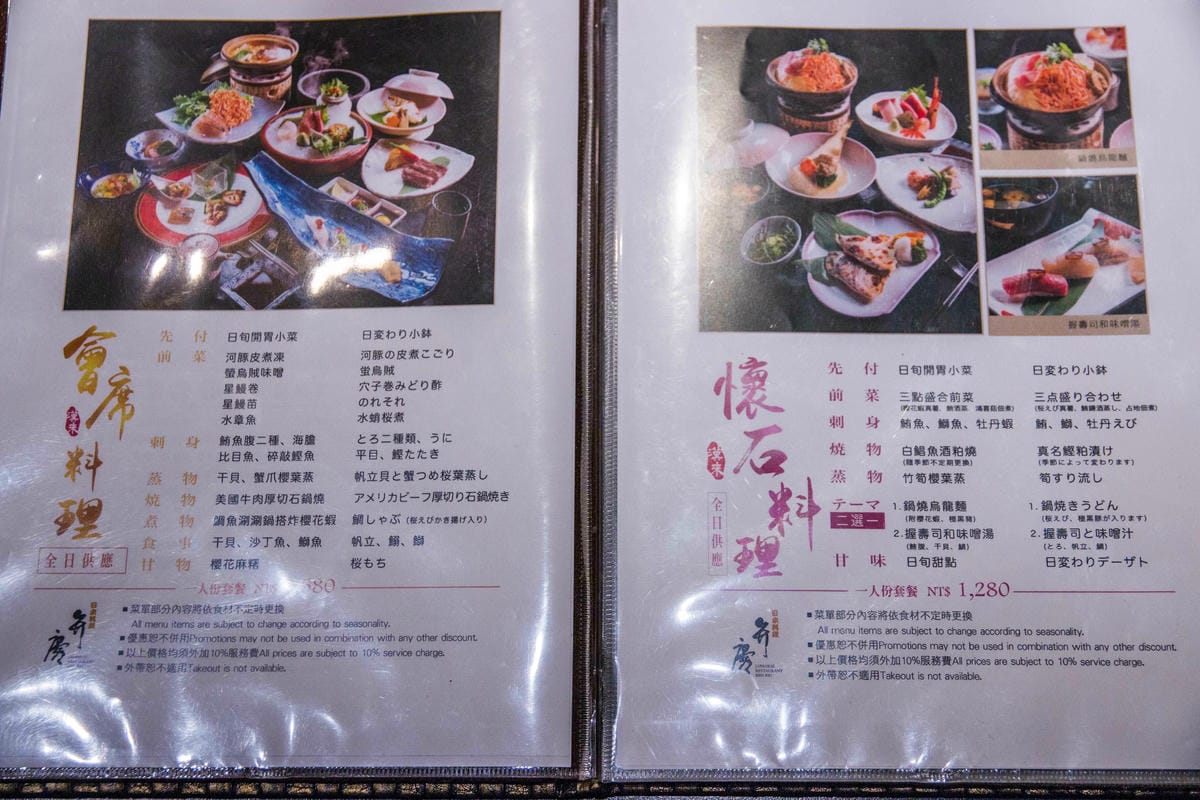 會席料理
漢來
全日供應
先付 日旬開胃小菜 日変わり小鉢
前菜 河豚皮煮凍 河豚の皮煮こごり
螢烏賊味噌 蛍烏賊
星鰻卷 穴子巻みどり酢
星鰻苗 のれそれ
水章魚 水蛸桜煮
刺身 鮪魚腹二種、海膽 とろ二種類、うに
比目魚、碎敲鰹魚 平目、鰹たたき
蒸物 干貝、蟹爪櫻葉蒸 帆立貝と蟹つめ桜葉蒸し
燒物 美國牛肉厚切石鍋燒 アメリカビーフ厚切り石鍋焼き
煮物 鯛魚涮涮鍋搭炸櫻花蝦 鯛しゃぶ (桜えびかき揚げ入り)
食事 干貝、沙丁魚、鰤魚 帆立、鰯、鰤
甘物 櫻花麻糬 桜もち
一人份套餐 NT$ 80
弁慶
日本料理
■菜單部分內容將依食材不定時更換
All menu items are subject to change according to seasonality.
■優惠恕不併用Promotions may not be used in combination with any other discount.
■以上價格均須外加10%服務費All prices are subject to 10% service charge.
■外帶恕不適用Takeout is not available.
鍋燒烏龍麵
握壽司和味噌湯
懷石料理
漢來
全日供應
先付 日旬開胃小菜 日変わり小鉢
前菜 三點盛合前菜 三点盛り合わせ
刺身 鮪魚、鰤魚、牡丹蝦 鮪、鰤、牡丹えび
燒物 白鯧魚酒粕燒 真名鰹粕漬け
(隨季節不定期更換) (季節によって変わります)
蒸物 竹筍櫻葉蒸 筍すり流し
テーマ 1.鍋燒烏龍麵 1.鍋焼きうどん
二選一 (附櫻花蝦、極黑豬) (桜えび、極黒豚が入ります)
2.握壽司和味噌湯 2.握寿司と味噌汁
(鮪腹、干貝、鯛) (とろ、帆立、鯛)
甘味 日旬甜點 日変わりデーザト
一人份套餐 NT$ 1,280
弁慶
日本料理
■菜單部分內容將依食材不定時更換
All menu items are subject to change according to seasonality.
■優惠恕不併用Promotions may not be used in combination with any other discount.
■以上價格均須外加10%服務費All prices are subject to 10% service charge.
■外帶恕不適用Takeout is not available.